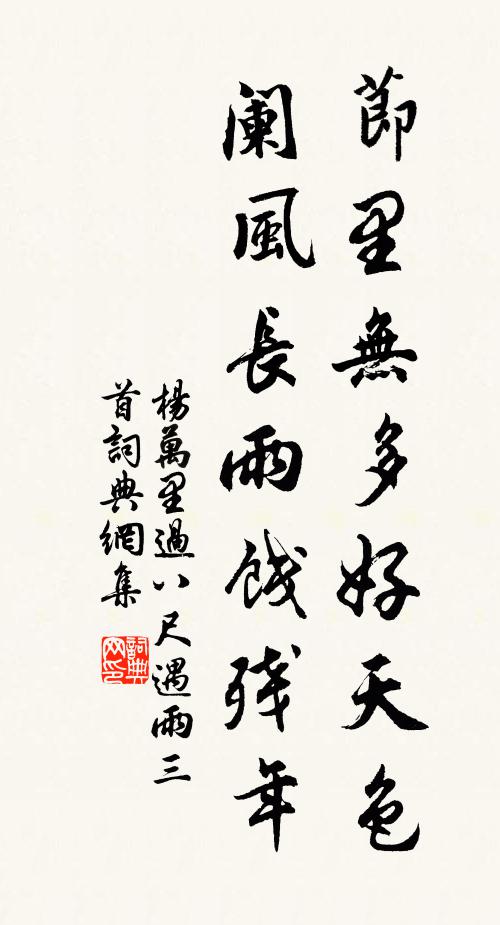 節里無多好天色
闌風長雨餞殘年
楊萬里過八尺遇雨三
首詞典網集
詞典
网印